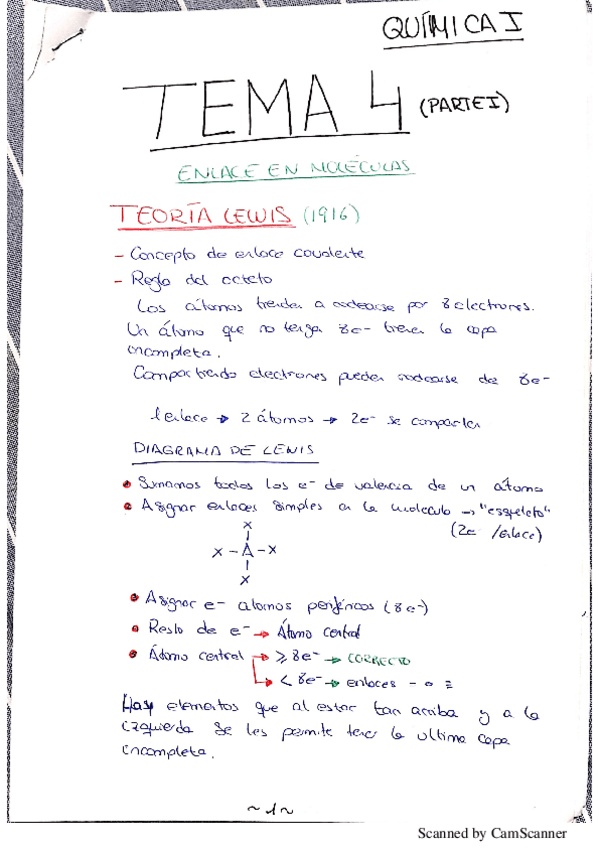 QUÍMICA I
TEMA 4 (PARTE I)
ENLACE EN MOLÉCULAS
TEORÍA LEWIS (1916)
- Concepto de enlace covalente
- Regla del octeto
Los átomos tienden a rodearse por 8 electrones.
Un átomo que no tenga 8e- tienen la capa
incompleta.
Compartiendo electrones pueden rodearse de 8e-
1 enlace → 2 átomos → 2e- se comparten
DIAGRAMA DE LEWIS
• Sumamos todos los e- de valencia de un átomo
• Asignar enlaces simples en la molécula → "esqueleto"
(2e- /enlace)
X
X - A - X
X
• Asignar e- átomos periféricos (8e-)
• Resto de e- → Átomo central
• Átomo central → ≥ 8e- → CORRECTO
→ < 8e- → enlaces = o ≡
Hay elementos que al estar tan arriba y a la
izquierda se les permite tener la ultima capa
incompleta.
~1~
Scanned by CamScanner